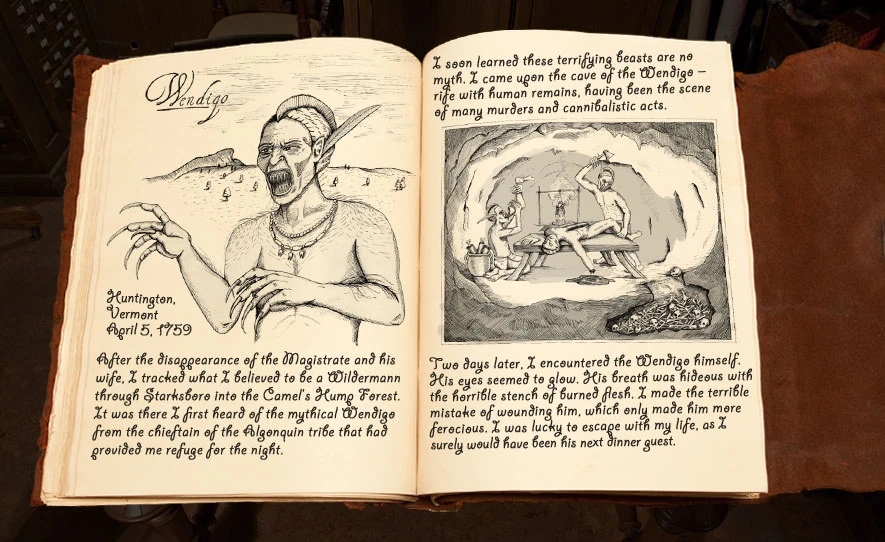 Wendigo
Huntington,
Vermont
April 5, 1759
After the disappearance of the Magistrate and his
wife, I tracked what I believed to be a Wildermann
through Starksboro into the Camel's Hump Forest.
It was there I first heard of the mythical Wendigo
from the chieftain of the Algonquin tribe that had
provided me refuge for the night.
I soon learned these terrifying beasts are no
myth. I came upon the cave of the Wendigo –
rife with human remains, having been the scene
of many murders and cannibalistic acts.
Two days later, I encountered the Wendigo himself.
His eyes seemed to glow. His breath was hideous with
the horrible stench of burned flesh. I made the terrible
mistake of wounding him, which only made him more
ferocious. I was lucky to escape with my life, as I
surely would have been his next dinner guest.